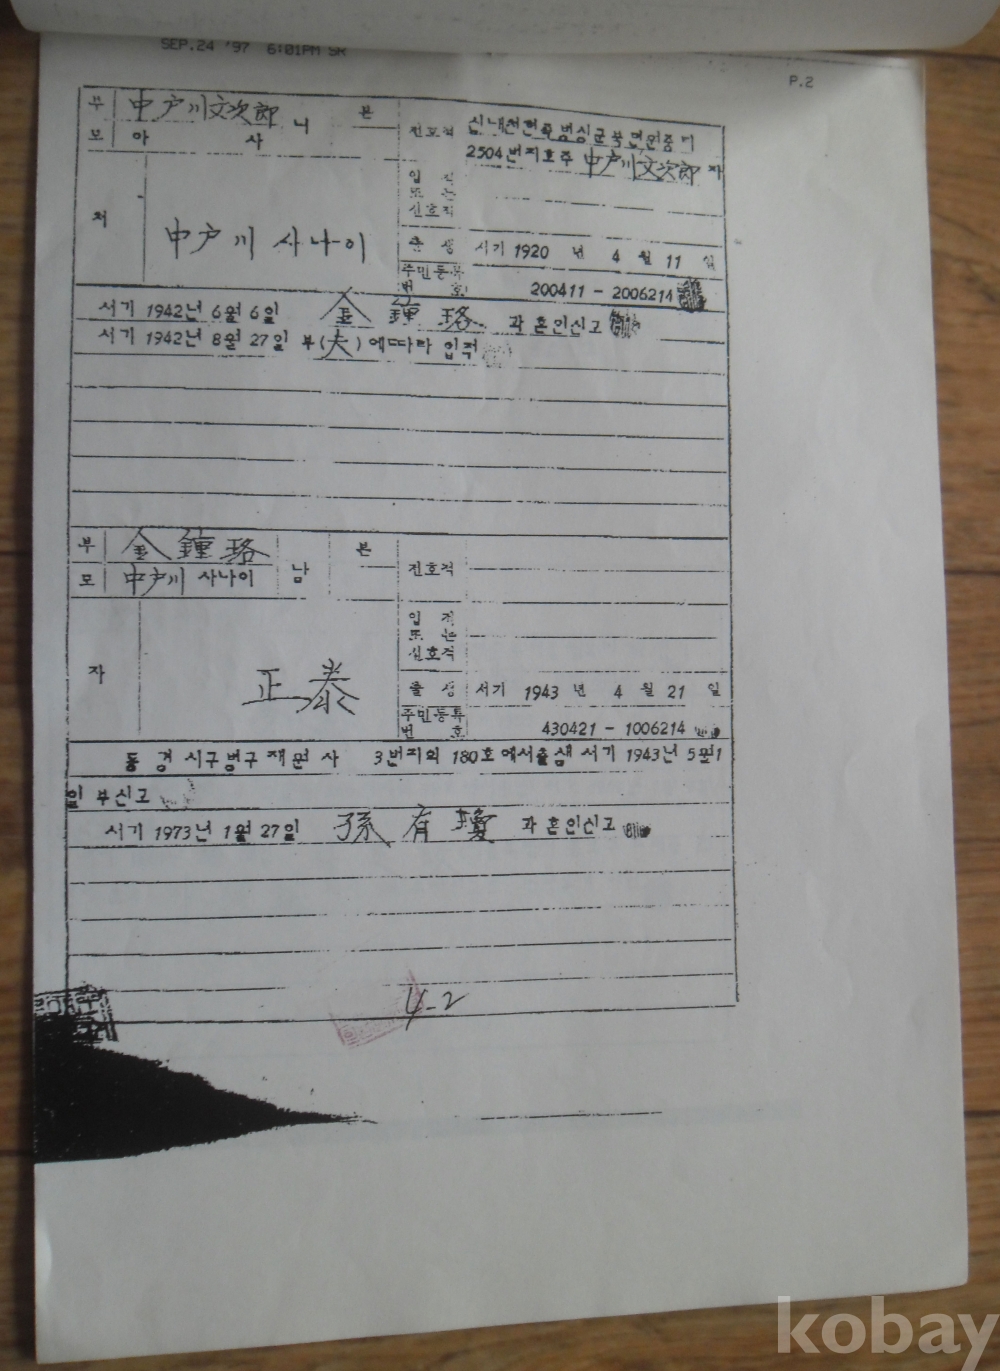 SEP.24 '97 6:01PM SR
P.2
부 中戶川文次郎 녀 본
모 아사
전호적
2504번지호주 中戶川文次郎 자
입적
또는
신호적
처 中戶川 사나이
출생 서기 1920 년 4 월 11 일
주민등록
번호 200411 - 2006214
서기 1942년 6월 6일 金鍾珞 과 혼인신고
서기 1942년 8월 27일 부(夫)에따라 입적
부 金鍾珞 남 본
모 中戶川 사나이
전호적
입적
또는
신호적
자 正泰
출생 서기 1943 년 4 월 21 일
주민등록
번호 430421 - 1006214
동경시 3번지의 180호에서출생 서기 1943년 5월1
일 부신고
서기 1973년 1월 27일 孫有瓊 과 혼인신고
4-2
kobay